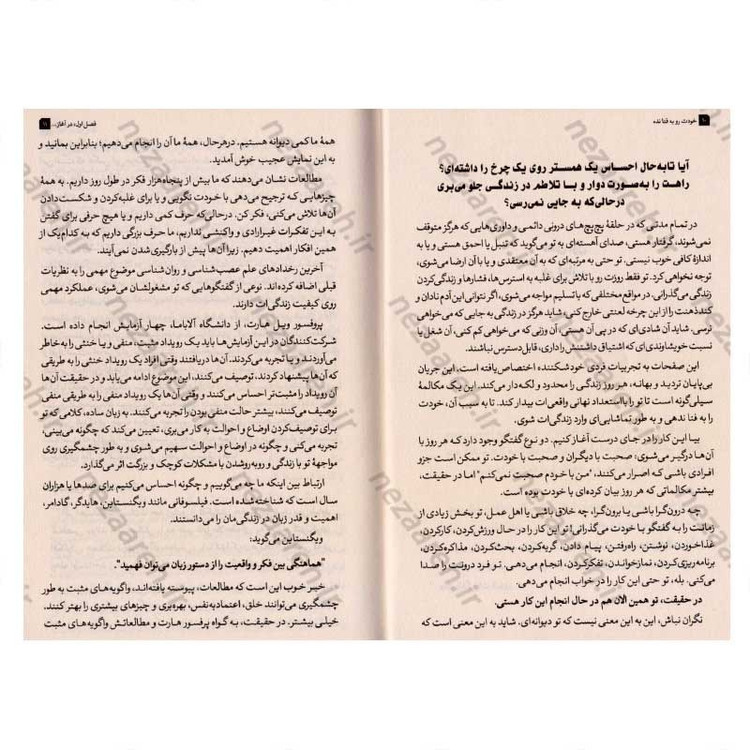 ۱۰ خودت رو به فنا نده
آیا تا به حال احساس یک همستر روی یک چرخ را داشته‌ای؟
راهت را به‌صورت دوار و با تلاطم در زندگی جلو می‌بری
درحالی‌که به جایی نمی‌رسی؟
در تمام مدتی که در حلقهٔ پچ‌پچ‌های درونی دائمی و داوری‌هایی که هرگز متوقف
نمی‌شوند، گرفتار هستی، صدای آهسته‌ای به تو می‌گوید که تنبل یا احمق هستی و یا به
اندازهٔ کافی خوب نیستی. تو حتی به مرتبه‌ای که به آن معتقدی و یا با آن ارضا می‌شوی،
توجه نخواهی کرد. تو فقط روزت رو با تلاش برای غلبه به استرس‌ها، فشارها و زندگی‌کردن
زندگی می‌گذرانی. در مواقع مختلفی که با تسلیم مواجه می‌شوی، اگر نتوانی این آدم نادان و
کندذهنت را از این چرخه لعنتی خارج کنی، شاید هرگز در زندگی به جایی که می‌خواهی
نرسی. شاید آن شادی‌ای که در پی آن هستی، آن وزنی که می‌خواهی کم کنی، آن شغل یا
نسبت خویشاوندی‌ای که اشتیاق داشتنش را داری، قابل‌دسترس نباشند.
این صفحات به تجربیات فردی خودشکننده اختصاص‌یافته است. این جریان
بی‌پایان تردید و بهانه، هر روز زندگی را محدود و لکه‌دار می‌کند. این یک مکالمهٔ
سیلی‌گونه است تا تو را با استعداد نهانی واقعی‌ات بیدار کند. تا به سبب آن، خودت
را به فنا ندهی و به طور تماشایی‌ای وارد زندگی‌ات شوی.
بیا این کار را در جای درست آغاز کنیم. دو نوع گفتگو وجود دارد که هر روز با
آن‌ها درگیر می‌شوی، صحبت با دیگران و صحبت با خودت. تو ممکن است جزو
افرادی باشی که اصرار می‌کنند، "من با خودم صحبت نمی‌کنم" اما در حقیقت،
بیشتر مکالماتی که هر روز بیان کرده‌ای با خودت بوده است.
چه درون‌گرا باشی یا برون‌گرا، چه خلاق باشی یا اهل عمل، تو بخش زیادی از
زمانت را به گفتگو با خودت می‌گذرانی! تو این کار را در حال ورزش‌کردن، کارکردن،
غذاخوردن، نوشتن، راه‌رفتن، پیام دادن، گریه‌کردن، بحث‌کردن، مذاکره‌کردن،
برنامه‌ریزی‌کردن، نمازخواندن، تفکرکردن، انجام می‌دهی. و فرد درونت را صدا
می‌کنی. بله، تو حتی این کار را در خواب انجام می‌دهی.
در حقیقت، تو همین الان هم در حال انجام این کار هستی.
نگران نباش، این به این معنی نیست که تو دیوانه‌ای. شاید به این معنی است که
فصل اول، در آغاز... ۱۱
همهٔ ما کمی دیوانه هستیم. درهرحال، همهٔ ما آن را انجام می‌دهیم؛ بنابراین بمانید و
به این نمایش عجیب خوش آمدید.
مطالعات نشان می‌دهند که ما بیش از پنجاه‌هزار فکر در طول روز داریم. به همهٔ
چیزهایی که ترجیح می‌دهی با خودت نگویی و یا برای غلبه‌کردن و شکست‌دادن
آن‌ها تلاش می‌کنی، فکر کن. درحالی‌که حرف کمی داریم و یا هیچ حرفی برای گفتن
به این تفکرات غیرارادی و واکنشی نداریم، ما حرف بزرگی داریم که به کدام‌یک از
همین افکار اهمیت دهیم. زیرا آن‌ها پیش از بارگیری‌شدن نمی‌آیند.
آخرین رخدادهای علم عصب‌شناسی و روان‌شناسی موضوع مهمی را به نظریات
قبلی اضافه کرده‌اند. نوعی از گفتگوهایی که تو مشغولشان می‌شوی، عملکرد مهمی
روی کیفیت زندگی‌ات دارند.
پروفسور ویل هارت، از دانشگاه آلاباما، چهار آزمایش انجام داده است.
شرکت‌کنندگان در این آزمایش‌ها باید یک رویداد مثبت، منفی و یا خنثی را به خاطر
می‌آوردند و یا تجربه می‌کردند. آن‌ها دریافتند وقتی افراد یک رویداد خنثی را به طریقی
که آن‌ها پیشنهاد کردند، توصیف می‌کنند، این موضوع ادامه می‌یابد و در حقیقت آن‌ها
آن رویداد را مثبت‌تر احساس می‌کنند و وقتی آن‌ها یک رویداد منفی را به طریقی منفی
توصیف می‌کنند، بیشتر حالت منفی بودن را تجربه می‌کنند. به زبان ساده، کلامی که تو
برای توصیف‌کردن اوضاع و احوالت به کار می‌بری، تعیین می‌کند که چگونه می‌بینی،
تجربه می‌کنی و چگونه در اوضاع و احوالت سهیم می‌شوی و به طور چشمگیری روی
مواجههٔ تو با زندگی و روبه‌روشدن با مشکلات کوچک و بزرگت اثر می‌گذارد.
ارتباط بین اینکه ما چه می‌گوییم و چگونه احساس می‌کنیم برای صدها یا هزاران
سال است که شناخته شده است. فیلسوفانی مانند ویگنستاین، هایدگر، گادامر،
اهمیت و قدر زبان در زندگی‌مان را می‌دانستند.
ویگنستاین می‌گوید:
"هماهنگی بین فکر و واقعیت را از دستور زبان می‌توان فهمید".
خبر خوب این است که مطالعات، پیوسته یافته‌اند، واگویه‌های مثبت به طور
چشمگیری می‌توانند خلق، اعتمادبه‌نفس، بهره‌بری و چیزهای بیشتری را بهتر کنند.
خیلی بیشتر. در حقیقت، به گواه پرفسور هارت و مطالعاتش واگویه‌های مثبت
nezaareh.ir